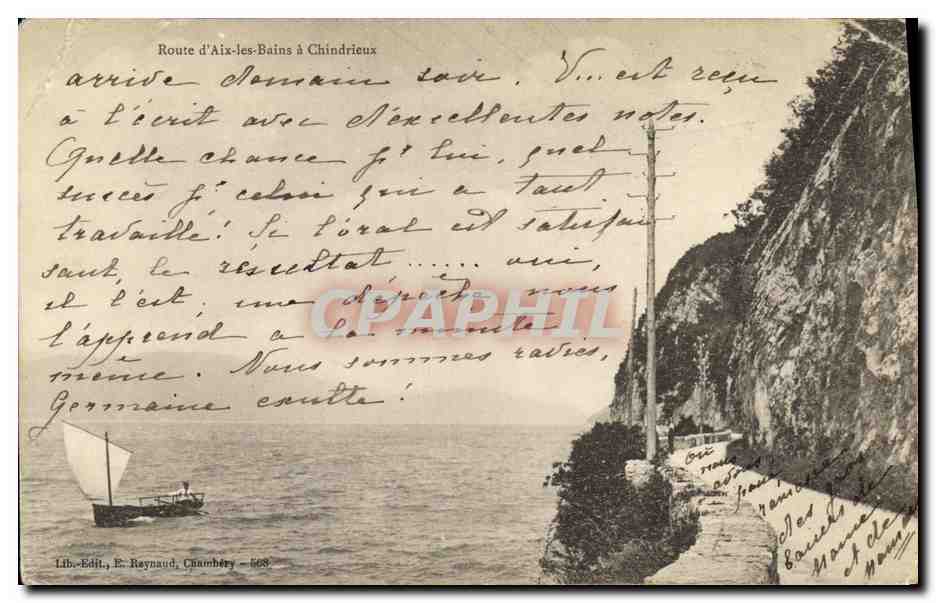 Route d'Aix-les-Bains à Chindrieux
arrive demain soir. V... est reçu
à l'écrit avec d'excellentes notes.
Quelle chance pr lui, quel
succès pr celui qui a tant
travaillé! Si l'oral est satisfai
sant, le résultat ...... oui,
il l'est. une dépêche nous
l'apprend à la minute
même. Nous sommes ravies,
Germaine exulte!
CPAPHIL
où
nous
des
et de
Lib.-Edit., E. Reynaud, Chambéry - 568